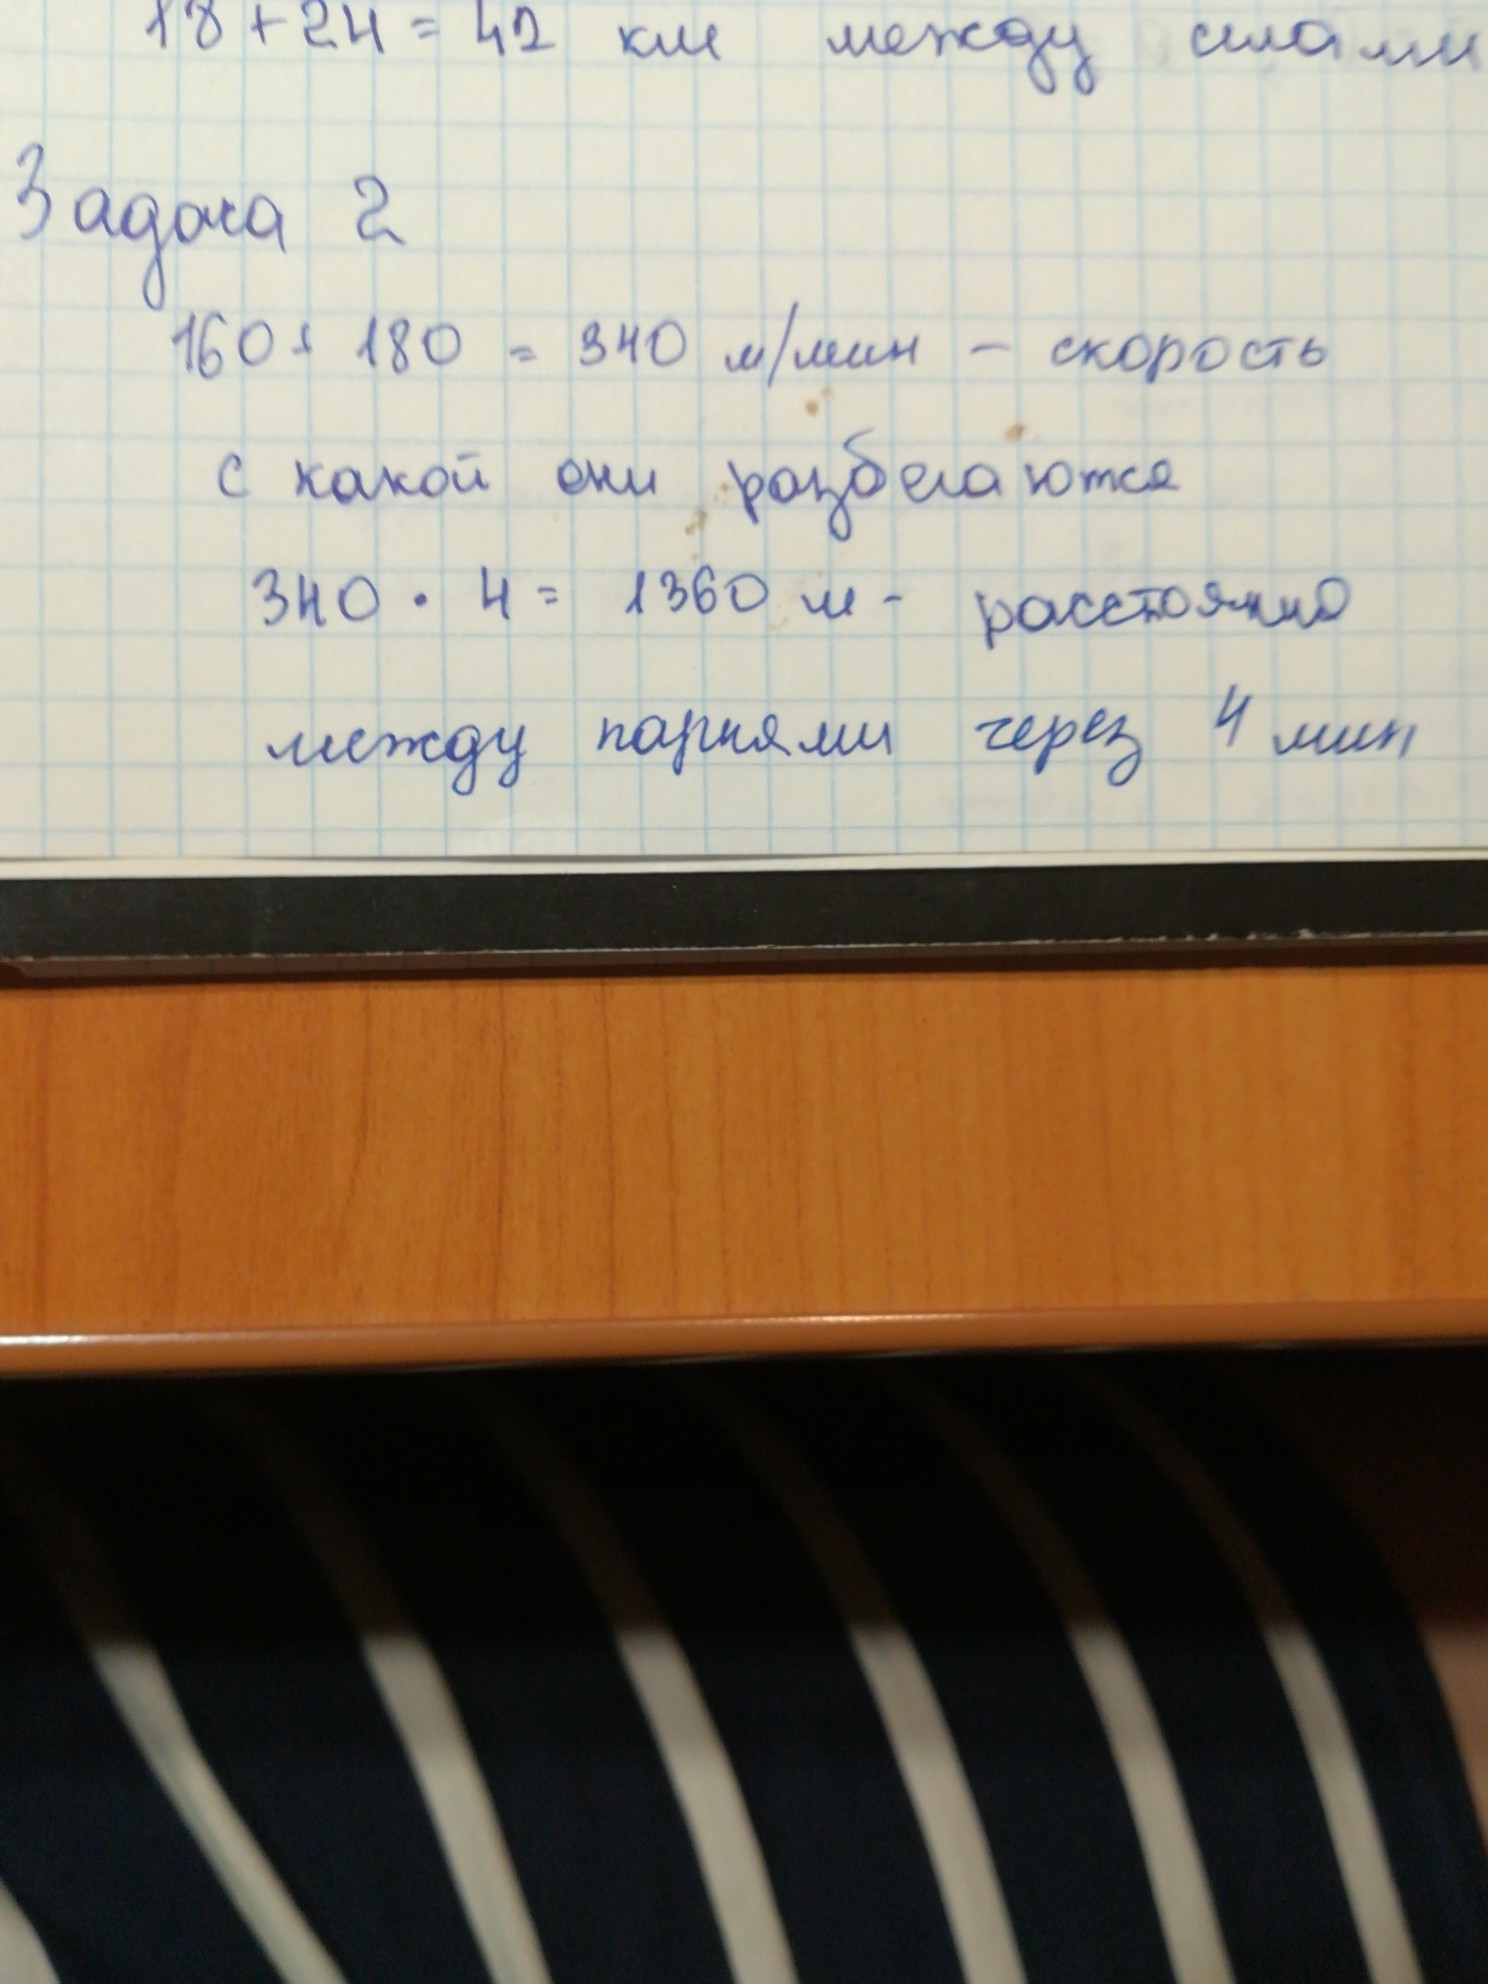 18 + 24 = 42 км между сёлами
Задача 2
160 + 180 = 340 м/мин - скорость
с какой они разбегаются
340 · 4 = 1360 м - расстояние
между парнями через 4 мин